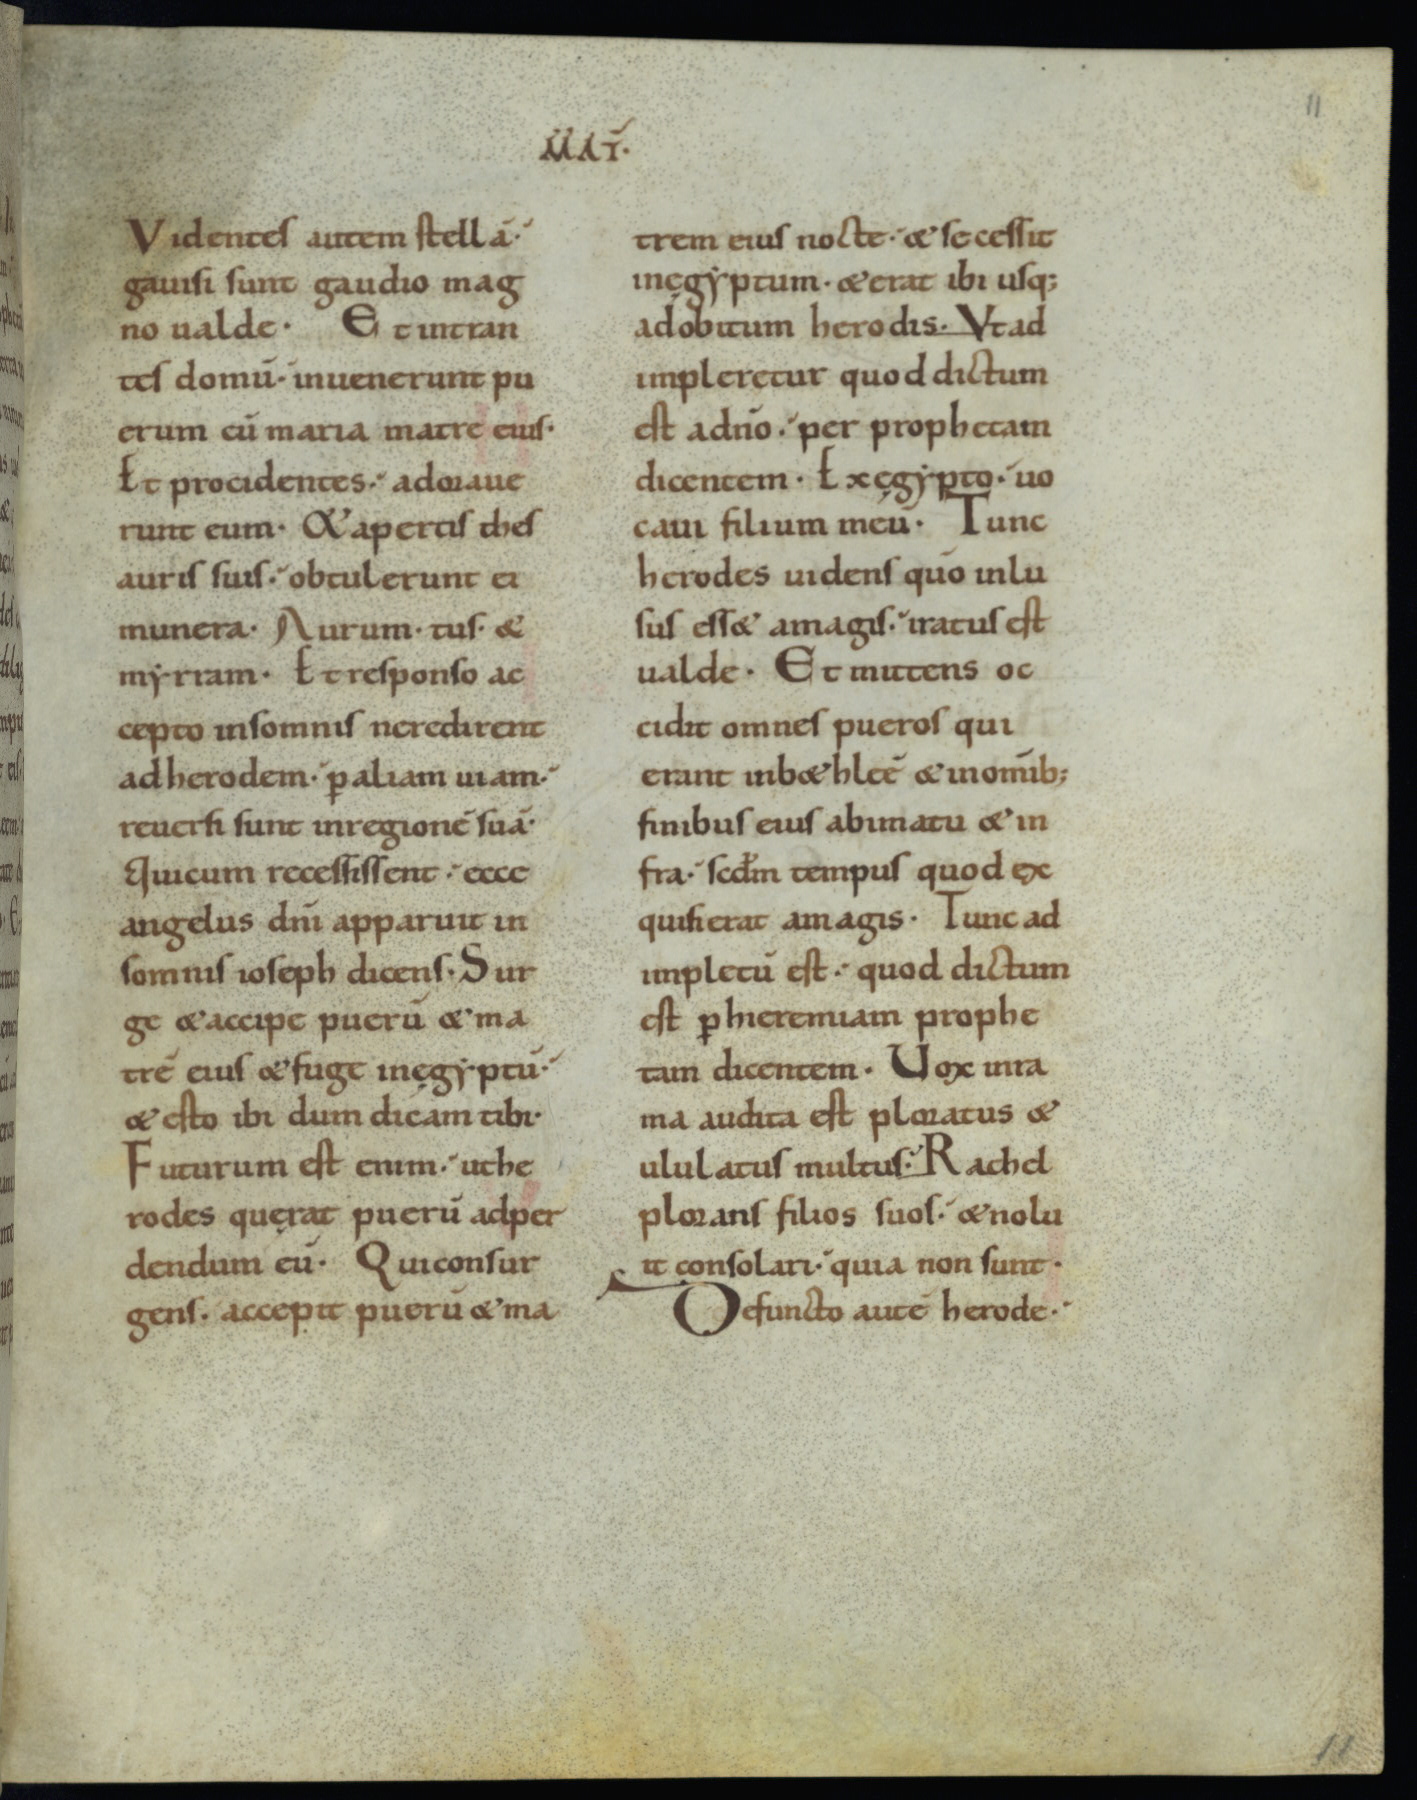 11
MAT̄.
Videntes autem stellā.
gauisi sunt gaudio mag
no ualde. Et intran
tes domū. inuenerunt pu
erum cū maria matre eius.
Et procidentes. adoraue
runt eum. & apertis thes
auris suis. obtulerunt ei
munera. Aurum. tus. &
myrram. Et responso ac
cepto insomnis neredirent
adherodem. ꝑaliam uiam.
reuersi sunt inregionē suā.
Quicum recessissent. ecce
angelus dn̄i apparuit in
somnis ioseph dicens. Sur
ge & accipe puerū & ma
trē eius & fuge inęgyptū.
& esto ibi dum dicam tibi.
Futurum est enim. uthe
rodes quęrat puerū adper
dendum eū. Quiconsur
gens. accepit puerū & ma
trem eius nocte. & secessit
inęgyptum. & erat ibi usq;
adobitum herodis. Vtad
impleretur quod dictum
est adn̄o. per prophetam
dicentem. Exęgypto. uo
caui filium meū. Tunc
herodes uidens quō inlu
sus ess& amagis. iratus est
ualde. Et mittens oc
cidit omnes pueros qui
erant inb&hleē & inomīb;
finibus eius abimatu & in
fra. scdm̄ tempus quod ex
quisierat amagis. Tunc ad
impletū est. quod dictum
est ꝑ hieremiam prophe
tam dicentem. Uox inra
ma audita est ploratus &
ululatus multus. Rachel
plorans filios suos. & nolu
it consolari. quia non sunt.
Defuncto autē herode.
11